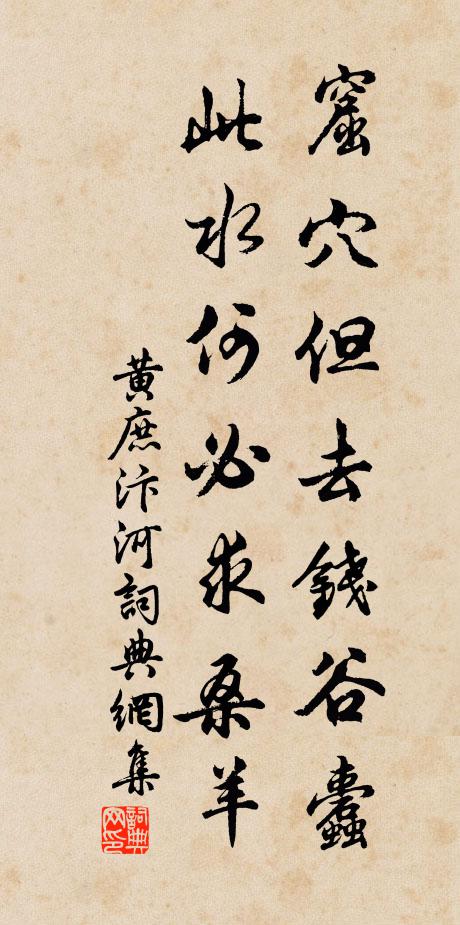 窟穴但去錢谷蠹
此水何必求桑羊
黄庶汴河詞典網集
詞典网印